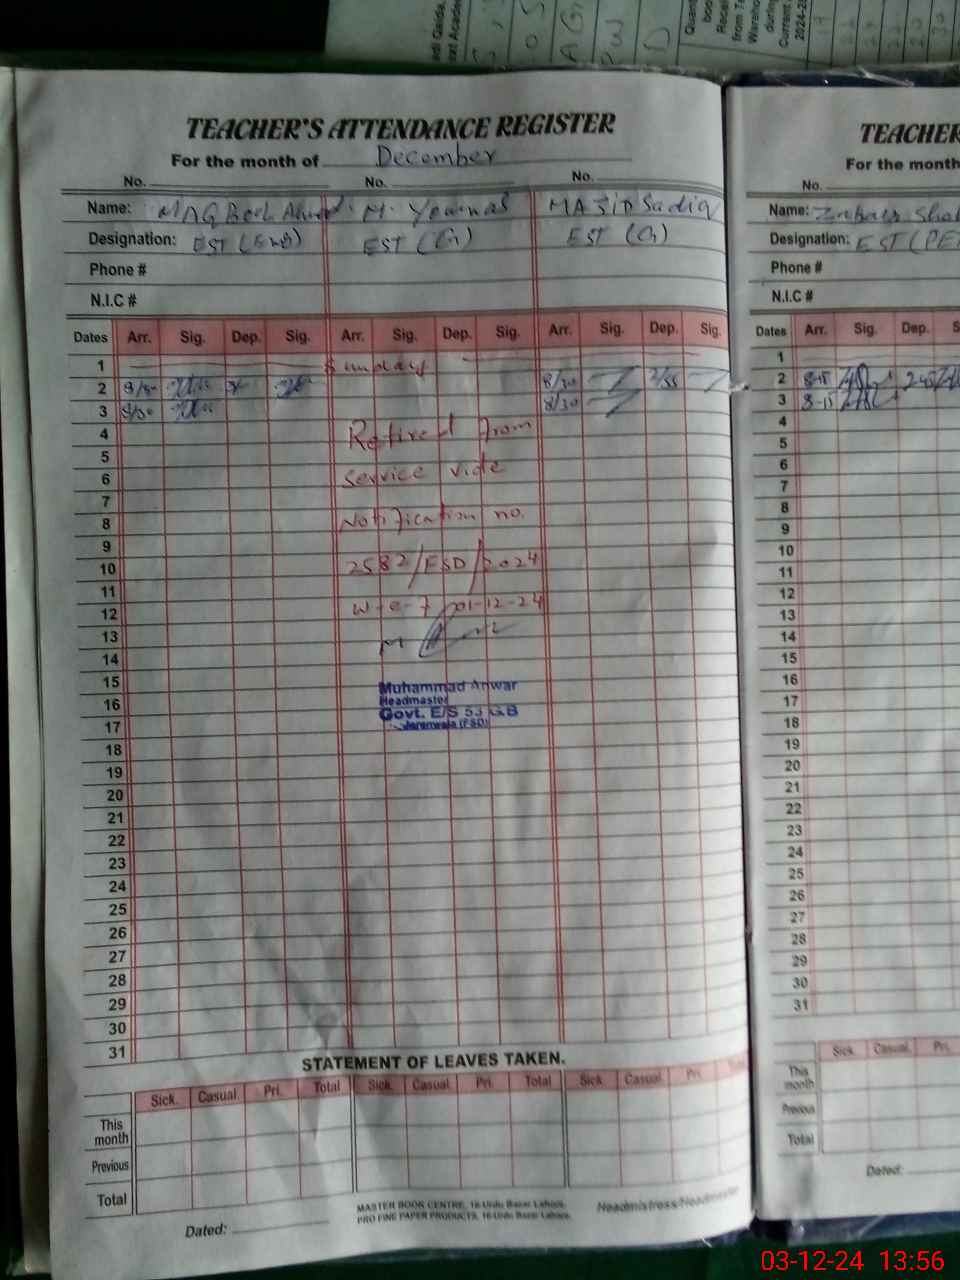 TEACHER'S ATTENDANCE REGISTER
For the month of December
No. No. No.
Name: M. Younas MAJID Sadiq
Designation: EST (Eng) EST (G) EST (G)
Phone #
N.I.C #
Dates Arr. Sig. Dep. Sig. Arr. Sig. Dep. Sig. Arr. Sig. Dep. Sig.
1 Sunday
2 8/30
3 8/30 8/30
4 Retired from
5
6 service vide
7
8 Notification no.
9
10 2582/FSD/2024
11
12 w-e-f 01-12-24
13
14
15 Muhammad Anwar
16 Headmaster
Govt. E/S 53 GB
17 Jaranwala (FSD)
18
19
20
21
22
23
24
25
26
27
28
29
30
31
STATEMENT OF LEAVES TAKEN.
Sick. Casual Pri. Total Sick. Casual Pri. Total Sick. Casual Pri.
This
month
Previous
Total
Dated:
MASTER BOOK CENTRE, 16-Urdu Bazar Lahore.
PRO FINE PAPER PRODUCTS, 16-Urdu Bazar Lahore.
Headmistress/Headmaster
TEACHER
For the month
No.
Name:
Designation: EST (PET
Phone #
N.I.C #
Dates Arr. Sig. Dep.
1
2 8-15 245
3 8-15
4
5
6
7
8
9
10
11
12
13
14
15
16
17
18
19
20
21
22
23
24
25
26
27
28
29
30
31
Sick. Casual. Pri.
This
month
Previous
Total
Dated:
Quant
boo
Recei
from Te
Wareho
during
Current
2024-25
03-12-24 13:56